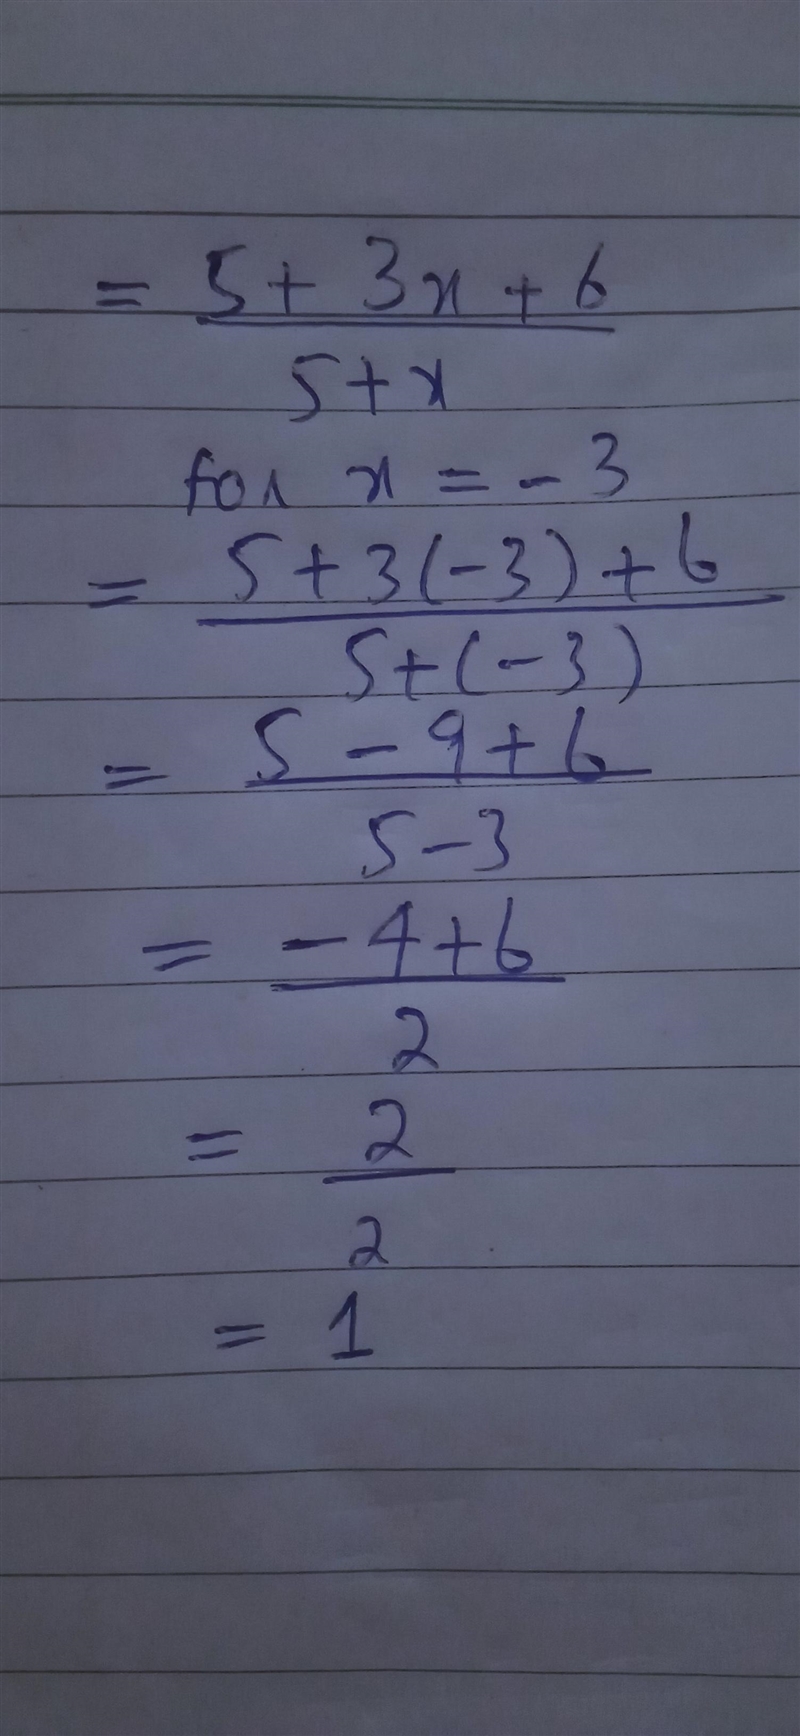 = 5 + 3x + 6
5 + x
for x = - 3
= 5 + 3(-3) + 6
5 + (-3)
= 5 - 9 + 6
5 - 3
= - 4 + 6
2
= 2
2
= 1